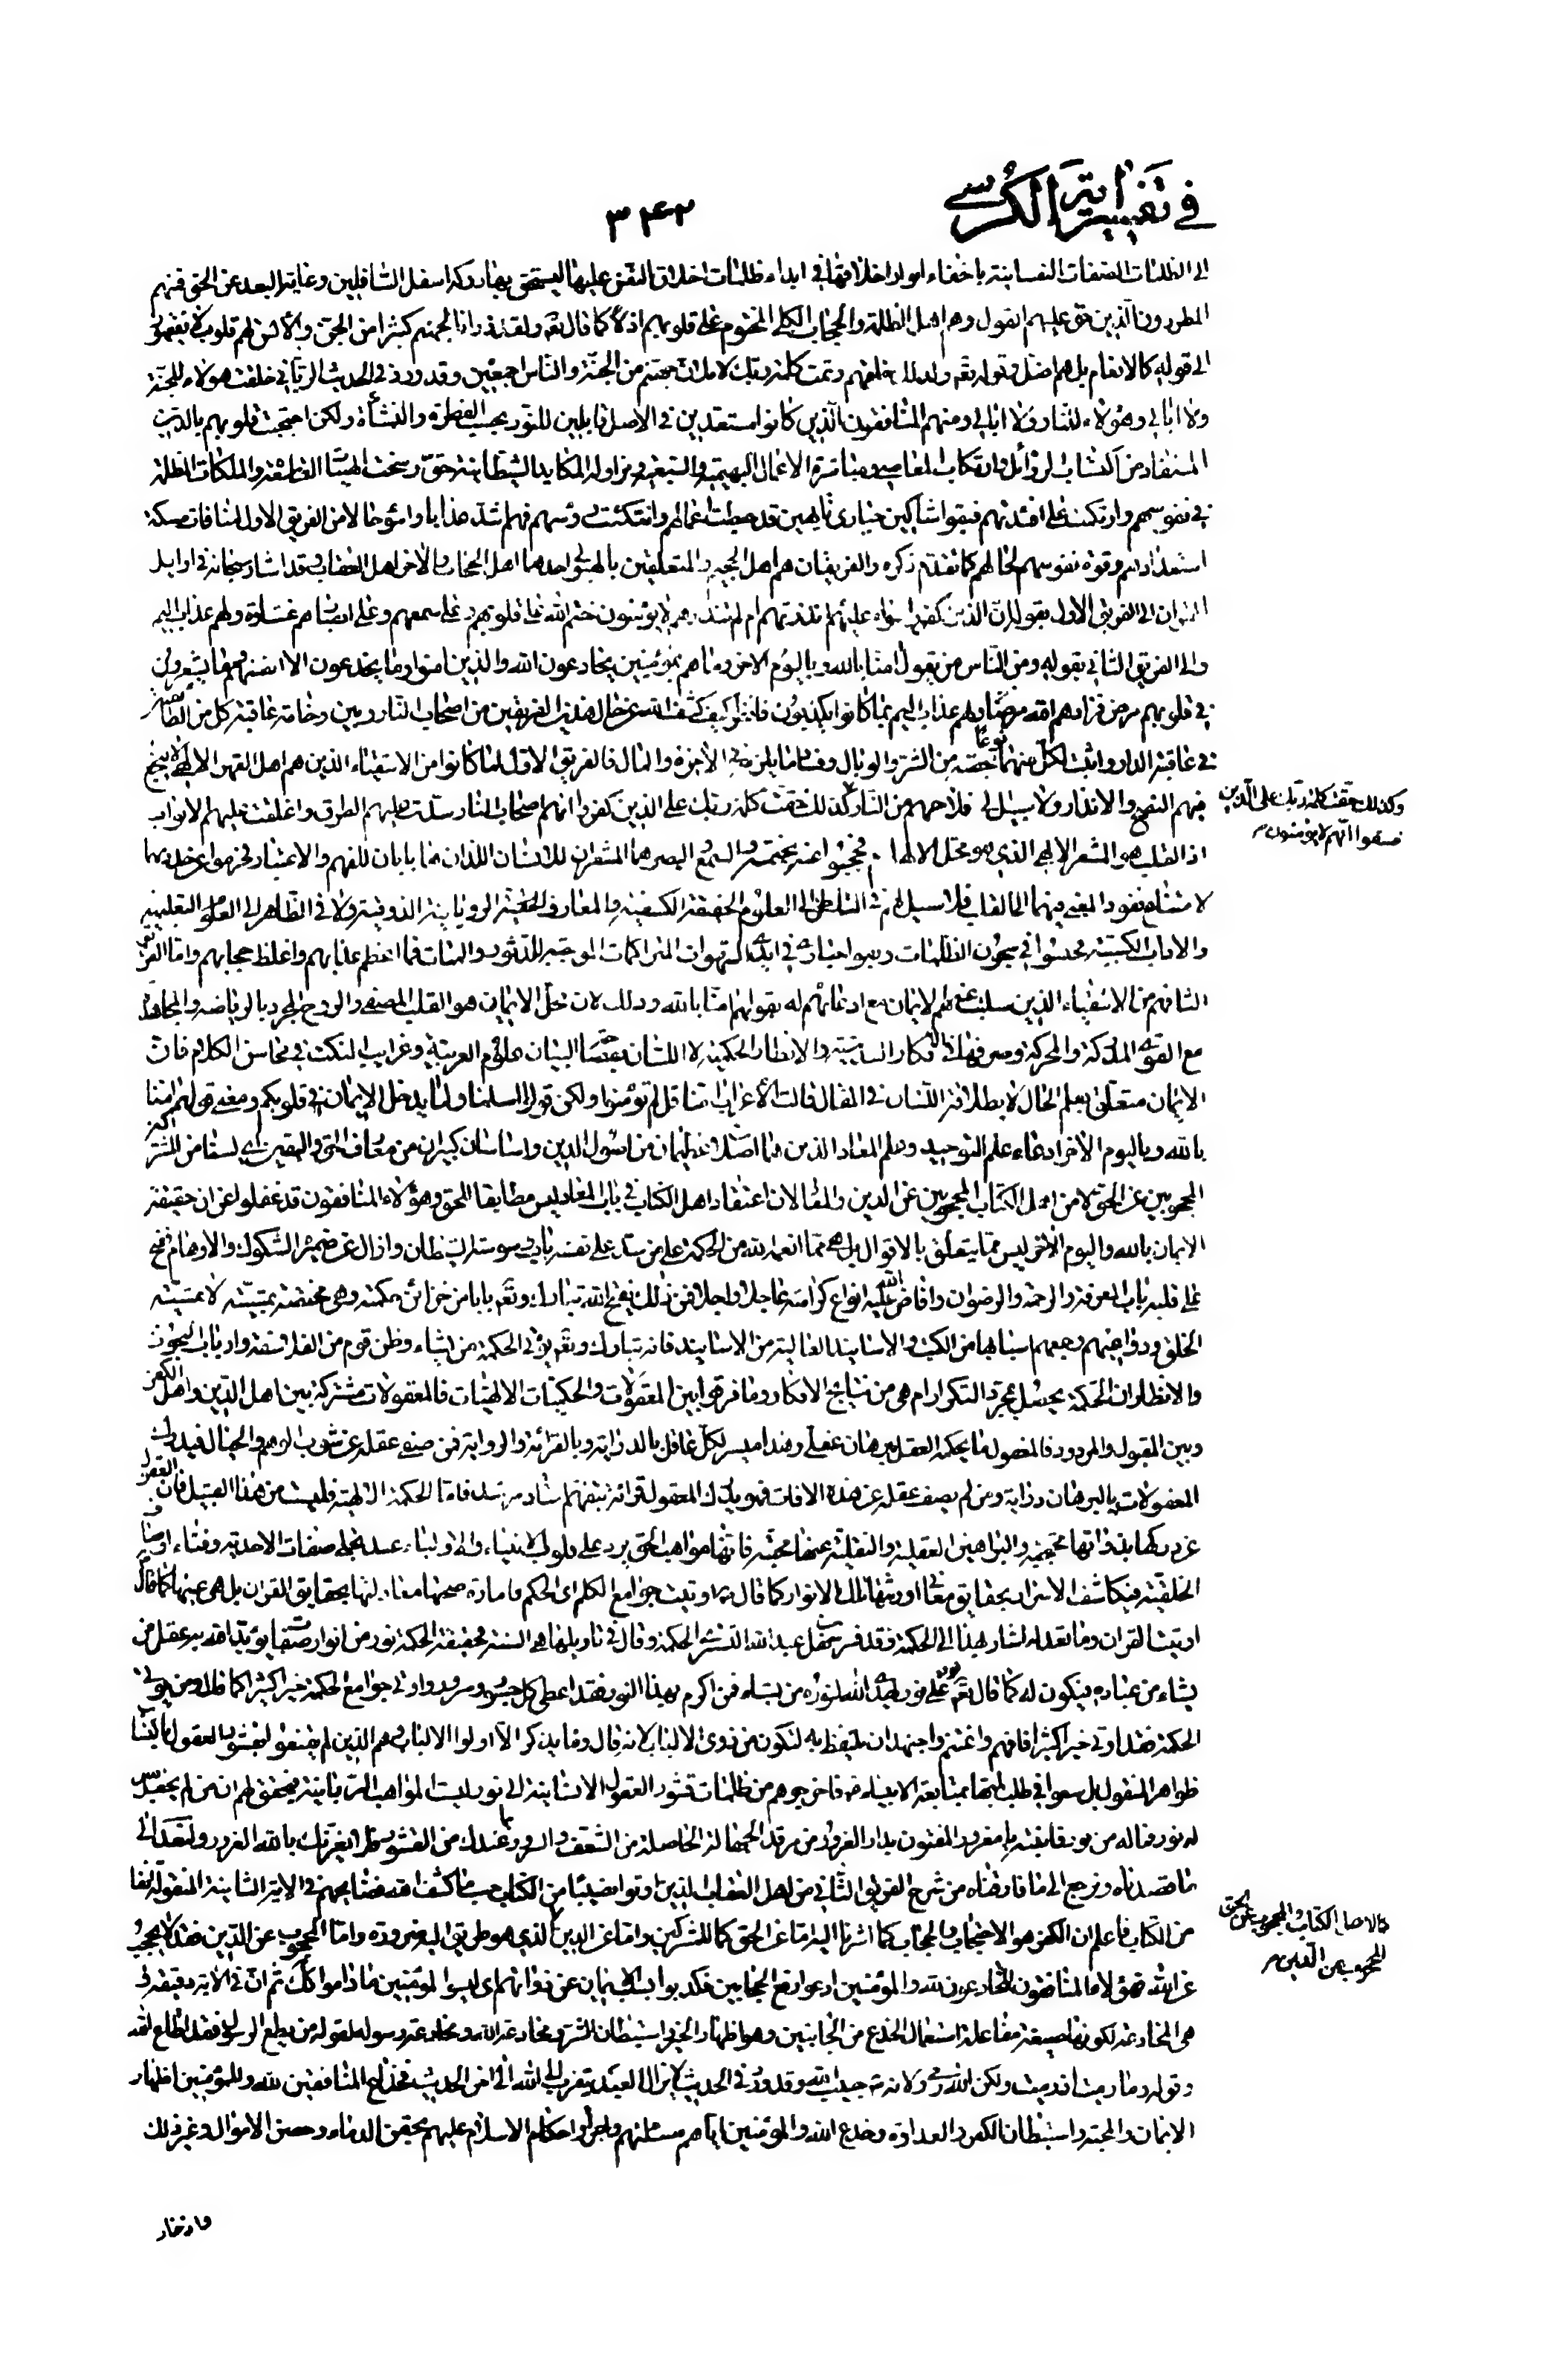 في تفسير اية الكرسي
٣٤٢
الى الظلمات الصفات النفسانية باخفاء انوار اخلاقها في ابداء ظلمات اخلاق النفس عليها ليستحق بها دركه اسفل السافلين وغاية البعد عن الحق فمنهم
المطرودون الذين حق عليهم القول وهم اهل الظلمة والحجاب الكلي المختوم على قلوبهم اذلا كما قال تع ولقد ذرانا لجهنم كثيرا من الجن والانس لهم قلوب لا يفقهون
الى قوله كالانعام بل هم اضل وقوله تع ولذلك خلقهم وتمت كلمة ربك لاملان جهنم من الجنة والناس اجمعين وقد ورد في الحديث الرباني خلقت هولاء للجنة
ولا ابالي وهولاء للنار ولا ابالي ومنهم المنافقون الذين كانوا مستعدين في الاصل قابلين للنور بحسب الفطرة والنشاة ولكن احتجبت قلوبهم بالرين
المستفاد من اكتساب الرذائل وارتكاب المعاصي ومباشرة الاعمال البهيمية والسبعية ومزاولة المكايد الشيطانية حتى رسخت الهيات الغاسقة والملكات المظلمة
في نفوسهم وارتكبت على افئدتهم فبقوا شاكين حيارى تايهين قد حبطت اعمالهم وانتكست رؤسهم فهم اشد عذابا واسوء حالا من الفريق الاول لمنافات مسكة
استعدادهم وقوة نفوسهم لحالهم كما تقدم ذكره والفريقان هم اهل الحجب المتعلقين بالهيولى احدهما اهل الحجاب والاخر اهل العقاب وقد اشار سبحانه في اوايل
القران الى الفريق الاول بقوله ان الذين كفروا سواء عليهم ءانذرتهم ام لم تنذرهم لا يؤمنون ختم الله على قلوبهم وعلى سمعهم وعلى ابصارهم غشاوة ولهم عذاب اليم
والى الفريق الثاني بقوله ومن الناس من يقول امنا بالله وباليوم الاخر وما هم بمؤمنين يخادعون الله والذين امنوا وما يخدعون الا انفسهم وما يشعرون
في قلوبهم مرض فزادهم الله مرضا ولهم عذاب اليم بما كانوا يكذبون فانظر كيف كشف الله عن حال هذين الفريقين من اصحاب النار وبين وخامة عاقبة كل من الطائفتين
في عاقبة الدار واثبت لكل منهما نوعا حصة من الشر والوبال وقسما ما يلزمه في الاخرة والمال فالفريق الاول لما كانوا من الاشقياء الذين هم اهل القهر الالهي لا ينجح
فيهم النصح والانذار ولا سبيل الى خلاصهم من النار كذلك حقت كلمة ربك على الذين كفروا انهم اصحاب النار سدت عليهم الطرق واغلقت عليهم الابواب
اذ القلب هو المشعر الالهي الذي هو محل الالهام فحجبوا عنه بختمه والسمع والبصر هما المشعران للانسان اللذان هما بابان للفهم والاعتبار فحرموا عن حظهما
لامتناع نفوذ المعنى فيهما الى القلب فلا سبيل لهم في الباطن الى العلوم الحقيقة الكشفية والمعارف الحقية الربانية الذوقية ولا في الظاهر الى العلوم التعليمية
والاداب الكسبية فحبسوا في سجون الظلمات فما اعظم عذابهم واغلظ حجابهم واما الفريق
الثاني فهم من الاشقياء الذين سلب عنهم الايمان مع ادعائهم له بقولهم امنا بالله وذلك لان محل الايمان هو القلب المصفى والروح المجرد بالرياضة والمجاهدة
مع القوة المدركة والمحركة وصرفهما في الافكار والانظار الحكمية لا اللسان علوم العربية وغرايب النكت في محاسن الكلام فان
الايمان متعلق بعلم الحال لا بطلاقة اللسان في المقال قالت الاعراب امنا قل لم تؤمنوا ولكن قولوا اسلمنا ولما يدخل الايمان في قلوبكم ومعنى قولهم امنا
بالله وباليوم الاخر ادعاء علم التوحيد وعلم المعاد الذين هما اصلان عظيمان من اصول الدين واساسان كبيران من معارف الحق واليقين اي لسنا من المشركين
المحجوبين عن الحق ولا من اهل الكتاب المحجوبين عن الدين والمعاد لان اعتقاد اهل الكتاب في باب المعاد ليس مطابقا للحق وهؤلاء المنافقون قد غفلوا عن ان حقيقة
الايمان بالله واليوم الاخر ليس مما يتعلق بالاقوال بل هي مما انعم الله من الحكمة على من سد على نفسه باب وسوسة الشيطان وازال عن ضميره الشكوك والاوهام فتح
على قلبه باب المعرفة والرحمة والرضوان وافاض الله عليه انواع كرامته عاجلا واجلا فمن ذلك يفتح الله تبارك وتع بابا من خزائن حكمته وهي مختصة بمشيته لا بمشية
الخلق فانه تبارك وتع يؤتي الحكمة من يشاء وظن قوم من الفلاسفة وارباب البحوث
والانظار ان الحكمة يحصل بمجرد التكرار ام هي من نتايج الافكار وما فرقوا بين المعقولات والحكميات الالهيات فالمعقولات مشتركة بين اهل الدين واهل الكفر
وبين المقبول والمردود فالمعقول ما يحكم العقل ببرهان عقلي وهذا ميسر لكل عاقل بالدراية وبالقرائة والرواية فمن صفى عقله عن شوب الوهم والخيال فيدرك
المعقولات بالبرهان دراية ومن لم يصف عقله عن هذه الافات فهو يدرك المعقول قرائة بتفهيم استاد مرشد فاما الحكمة الالهية فليست من هذا القبيل فان العقول
عن دركها بذواتها محتجبة والبراهين العقلية والنقلية عنها محجبة فانها مواهب الحق يرد على قلوب الانبياء والاولياء عند تجلي صفات الاحدية وفناء اوصاف
الخلقية فيكاشف الاسرار بحقايق معان اورثها تلك الانوار كما قال ص اوتيت جوامع الكلم اي الحكم بحقايق القران بل هي عينها كما قال
اوتيت القران وما تعدله اشار بهذا الى الحكمة فقد فسر سهل عبد الله التستري الحكمة وقال في تاويلها هي السنة فحقيقة الحكمة نور من انوار صفات يؤيد الله به عقل من
يشاء من عباده فيكون له كما قال تع نور على نور يهدي الله لنوره من يشاء فمن اكرم بهذا النور فقد اعطي كل واوتي جوامع الحكمة خيرا كثيرا كما قال ومن يؤتى
الحكمة فقد اوتي خيرا كثيرا فافهم واغتنم واجتهد ان يتيقظ به لتكون من ذوي الالباب لانه قال وما يذكر الا اولوا الالباب وهم الذين لم يقنعوا بقشور العقول بالباب
ظواهر المنقول بل سعوا في طلب لبها بمتابعة الانبياء ع فاخرجوهم من ظلمات قشور العقول الانسانية الى نور لب المواهب الربانية فيحقق لهم ان من لم يجعل الله
له نورا فما له من نور فانتبه يا مغرور المفتون بدار الغرور من مرقد الجهالة الحاصلة من الشعف والسرور بما عندك من القشور فلا يغرنك بالله الغرور ولنعد الى
ما قصدناه ونرجع الى ما فارقناه من شرح الفريق الثاني من اهل العقاب الذين اوتوا نصيبا من الكتاب حيث ما كشف الله فضايحهم في الاية الثانية المنقولة انفا
من الكتاب فاعلم ان الكفر هو الاحتجاب والحجاب كما اشرنا اليه اما عن الحق كما للمشركين واما عن الدين الذي هو طريق اليه ضرورة واما المحجوب عن الدين فقد لا يحجب
عن الله فهؤلاء المنافقون المخادعون لله والمؤمنين ادعوا رفع الحجابين فكذبوا بسلب الايمان عن ذواتهم اي ليسوا مؤمنين ما داموا كك ثم ان في الاية دقيقة
هي المخادعة لكونها صيغة مفاعلة استعمال الخدع من الجانبين وهو اظهار الخير واستبطان الشر ومخادعة الله مخادعة رسوله لقوله من يطع الرسول فقد اطاع الله
وقوله وما رميت اذ رميت ولكن الله رمى ولانه حبيب الله وقد ورد في الحديث لا يزال العبد يتقرب الى الله الى اخر الحديث فخداع المنافقين لله وللمؤمنين اظهار
الايمان والمحبة واستبطان الكفر والعداوة وخداع الله والمؤمنين اياهم مسالمتهم واجراء احكام الاسلام عليهم بحقن الدماء وحصن الاموال وغير ذلك
وادخار
وكذلك حقت كلمة ربك على الذين
فسقوا انهم لا يؤمنون
كالاهل الكتاب والمحجوب عن الحق
المحجوب عن الدين